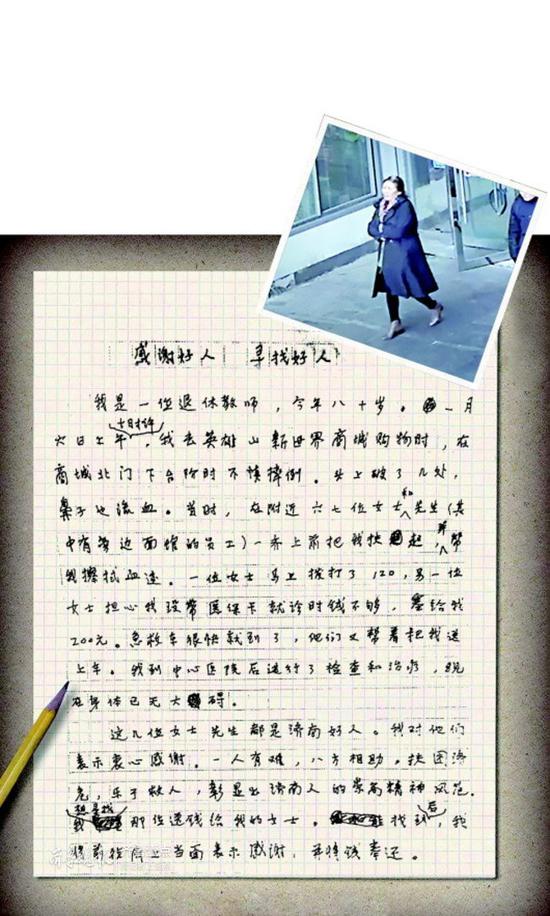 感谢好人 寻找好人
我是一位退休教师，今年八十岁。一月
六日上午，我去英雄山新世界商城购物时，在
商城北门下台阶时不慎摔倒。头上破了几处，
鼻子也流血。当时，在附近六七位女士和先生(其
中有旁边面馆的员工)一齐上前把我扶起，并帮
我擦拭血迹。一位女士马上拨打了120，另一位
女士担心我没带医保卡就诊时钱不够，塞给我
200元。急救车很快就到了，他们又帮着把我送
上车。我到中心医院后进行了检查和治疗，现
在身体已无大碍。
这几位女士先生都是济南好人。我对他们
表示衷心感谢。一人有难，八方相助。扶困济
危，乐于救人，彰显出济南人的崇高精神风范。
我想寻找那位送钱给我的女士。找到后，我
将前往府上当面表示感谢，并将钱奉还。